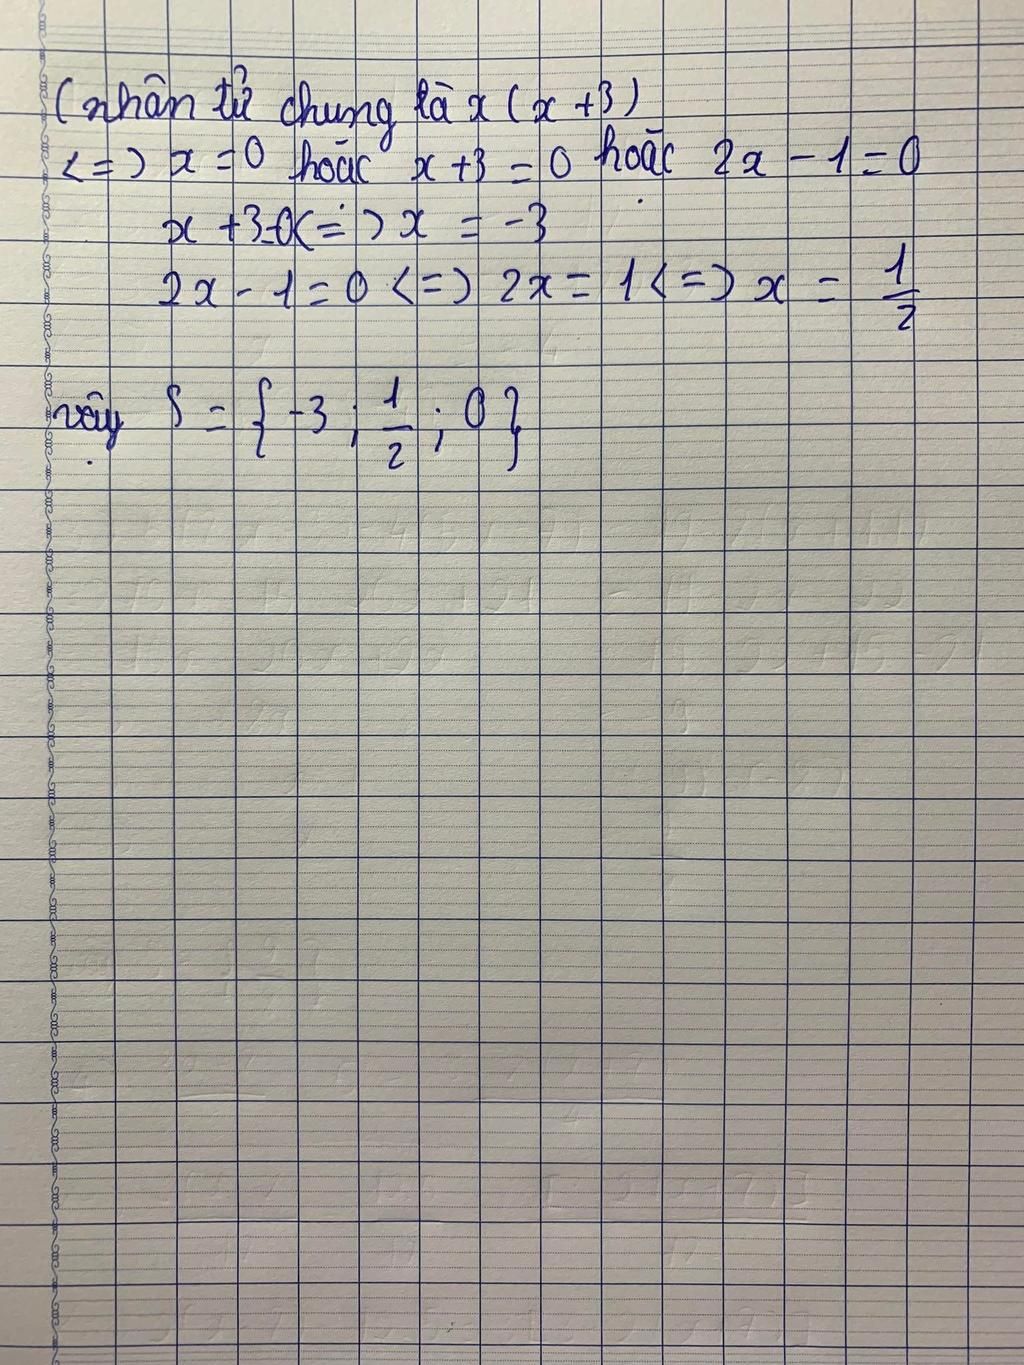 (nhân tử chung là x (x +3)
<=> x = 0 hoặc x +3 = 0 hoặc 2x - 1 = 0
x +3=0<=> x = -3
2x - 1 = 0 <=> 2x = 1 <=> x = 1/2
vậy S = { -3 ; 1/2 ; 0 }